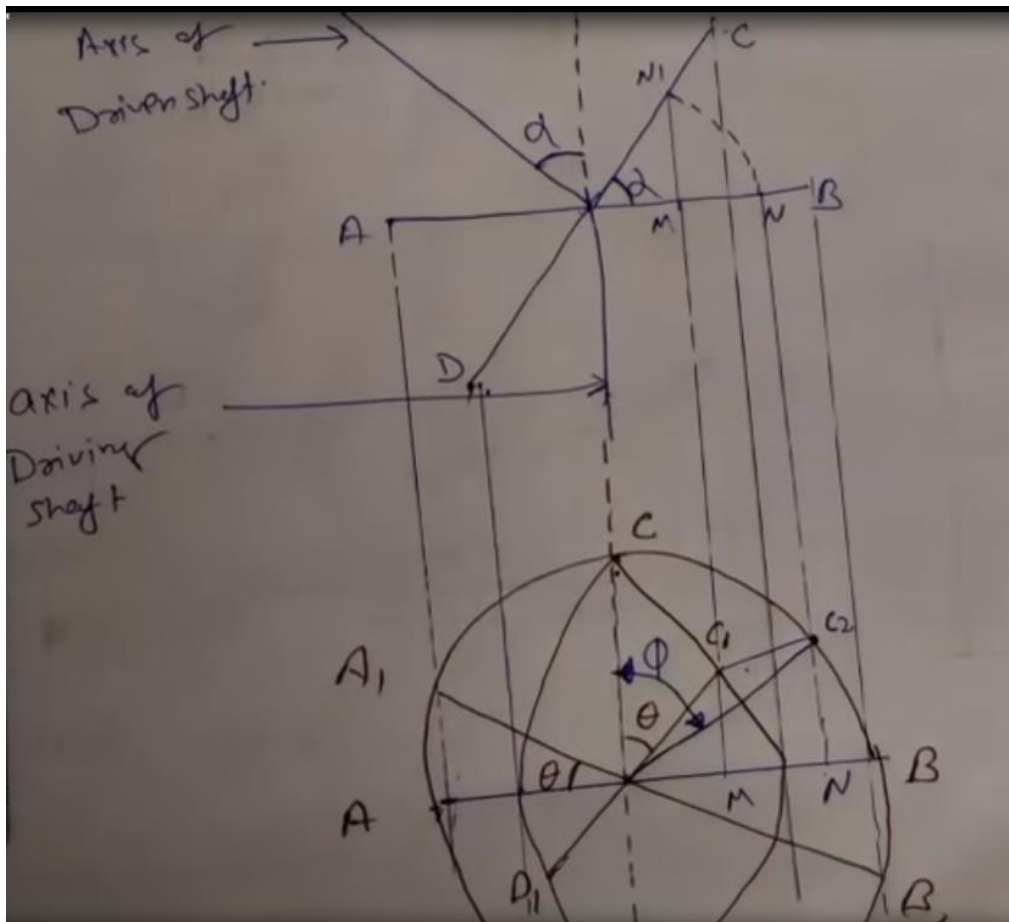 Axis of
Driven shaft.
C
N1
α
α
A
M
N
B
D
axis of
Driving
shaft
C
C1
C2
A1
φ
θ
θ
A
M
N
B
D11
B